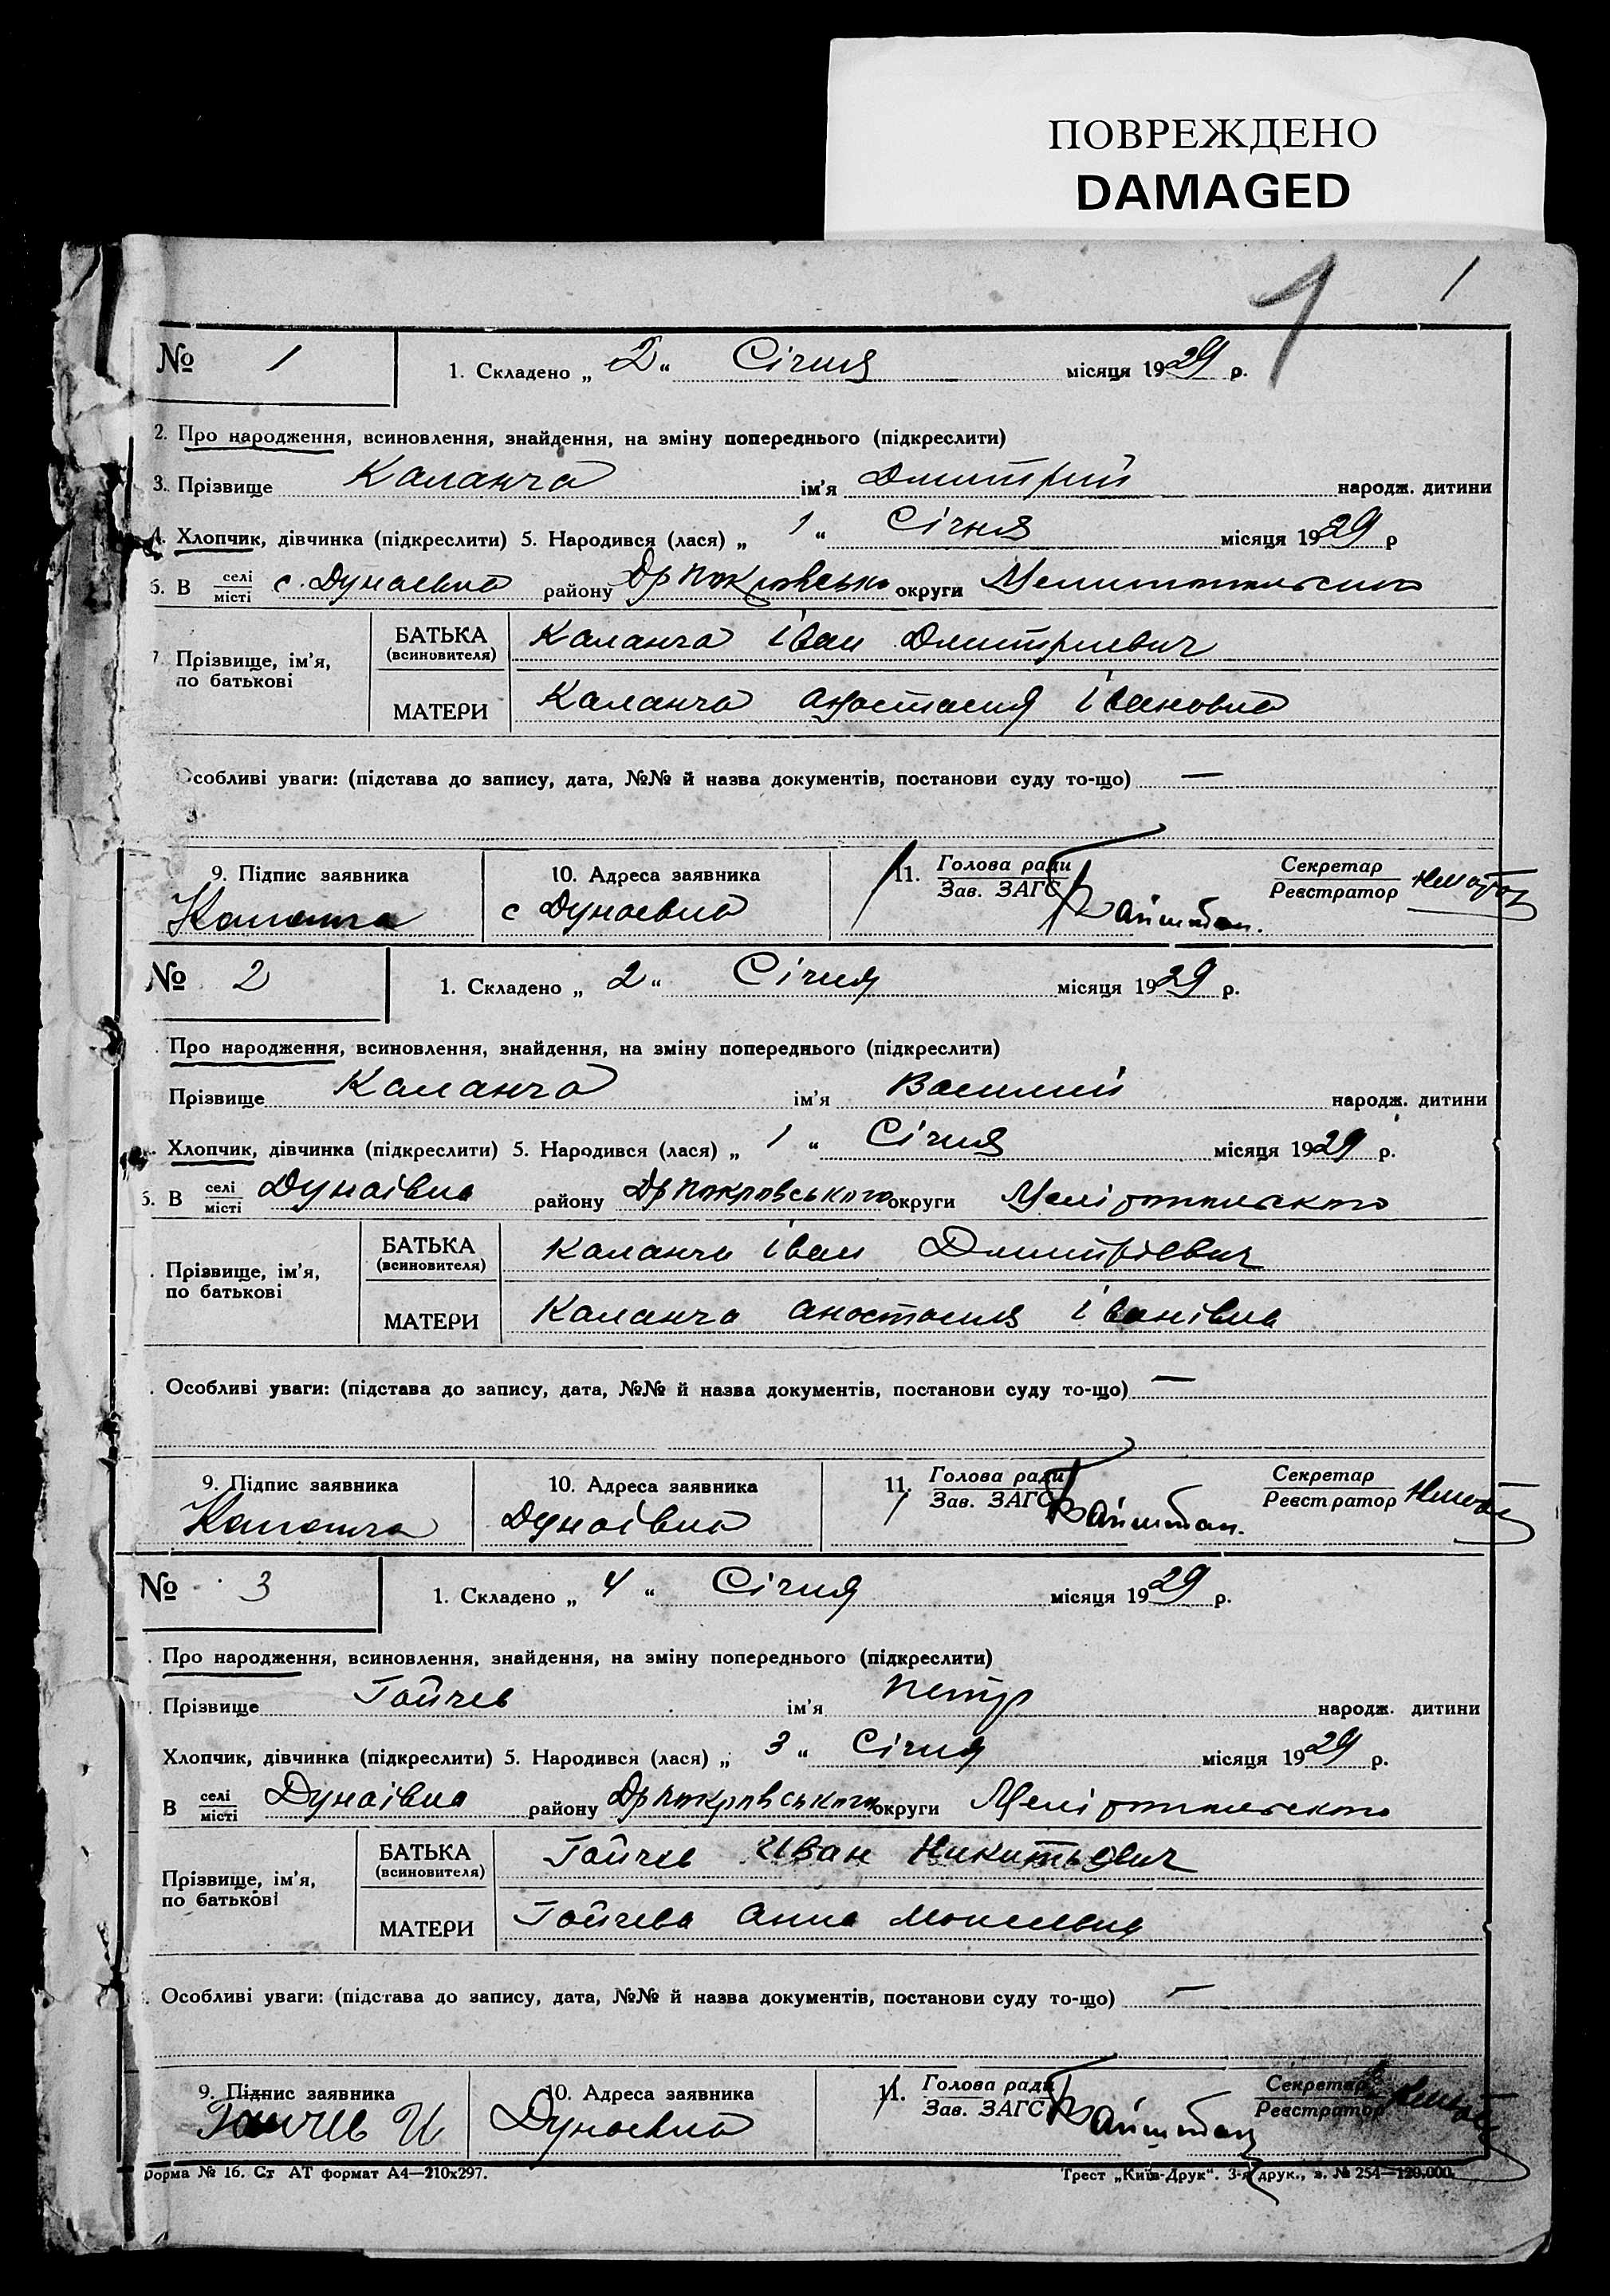 ПОВРЕЖДЕНО
DAMAGED
1 1
№ 1 1. Складено „ 2 “ Січня місяця 1929 р.
2. Про народження, всиновлення, знайдення, на зміну попереднього (підкреслити)
3. Прізвище Каланча ім'я Дмитрий народж. дитини
4. Хлопчик, дівчинка (підкреслити) 5. Народився (лася) „ 1 “ Січня місяця 1929 р
6. В селі місті с. Дунаевна району Др Покровсько округи Мелитопольсько
7. Прізвище, ім'я, по батькові БАТЬКА (всиновителя) Каланча Іван Дмитриевич
МАТЕРИ Каланча Анастасия Івановна
Особливі уваги: (підстава до запису, дата, №№ й назва документів, постанови суду то-що) —
9. Підпис заявника 10. Адреса заявника 11. Голова ради Зав. ЗАГС Секретар Реєстратор
Каланча с Дунаевна
№ 2 1. Складено „ 2 “ Січня місяця 1929 р.
Про народження, всиновлення, знайдення, на зміну попереднього (підкреслити)
Прізвище Каланча ім'я Василий народж. дитини
Хлопчик, дівчинка (підкреслити) 5. Народився (лася) „ 1 “ Січня місяця 1929 р.
6. В селі місті Дунаівна району Др Покровського округи Мелітопольского
Прізвище, ім'я, по батькові БАТЬКА (всиновителя) Каланча Іван Дмитрієвич
МАТЕРИ Каланча Анастасия Іванівна
Особливі уваги: (підстава до запису, дата, №№ й назва документів, постанови суду то-що) —
9. Підпис заявника 10. Адреса заявника 11. Голова ради Зав. ЗАГС Секретар Реєстратор
Каланча Дунаівна
№ 3 1. Складено „ 4 “ Січня місяця 1929 р.
Про народження, всиновлення, знайдення, на зміну попереднього (підкреслити)
Прізвище Гайчев ім'я Петр народж. дитини
Хлопчик, дівчинка (підкреслити) 5. Народився (лася) „ 3 “ Січня місяця 1929 р.
В селі місті Дунаівна району Др Покровського округи Мелітопольского
Прізвище, ім'я, по батькові БАТЬКА (всиновителя) Гайчев Иван Никитьевич
МАТЕРИ Гайчева Анна
Особливі уваги: (підстава до запису, дата, №№ й назва документів, постанови суду то-що) —
9. Підпис заявника 10. Адреса заявника 11. Голова ради Зав. ЗАГС Секретар Реєстратор
Гайчев И Дунаевна
Форма № 16. Ст АТ формат А4—210х297. Трест „Київ-Друк“. 3-я друк., з. № 254—120.000.